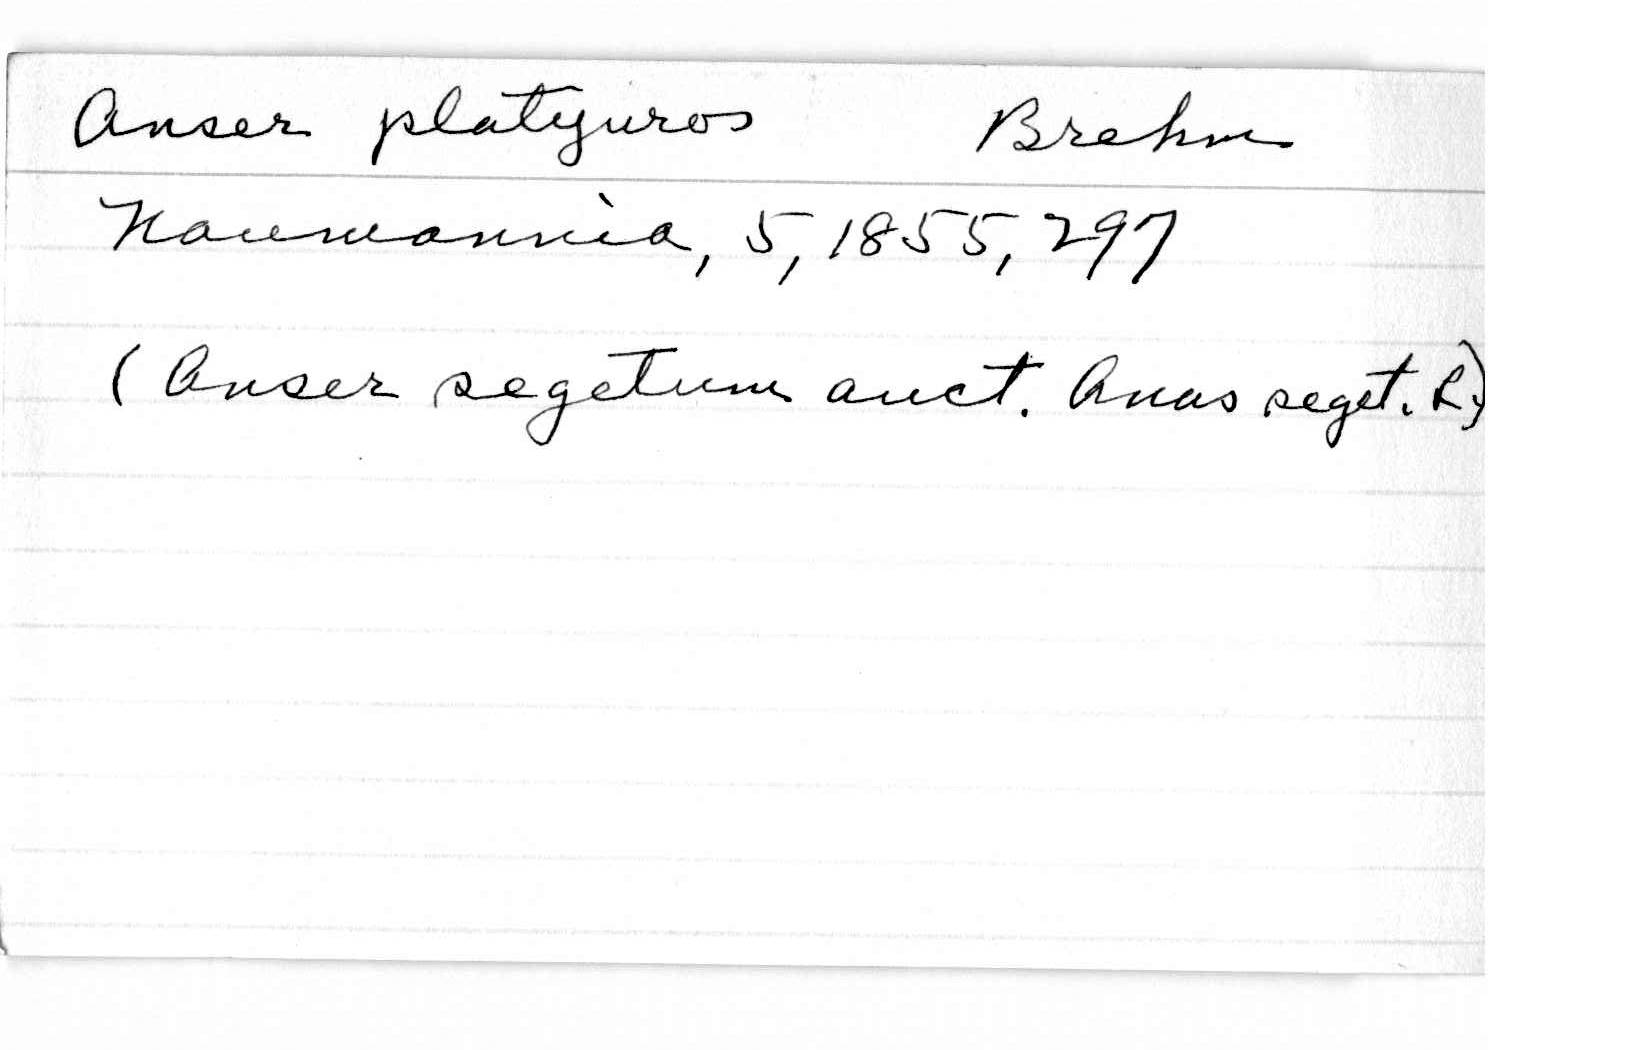 Anser platyuros Brehm
Naumannia, 5, 1855, 297
(Anser segetum auct. Anas seget. L.)